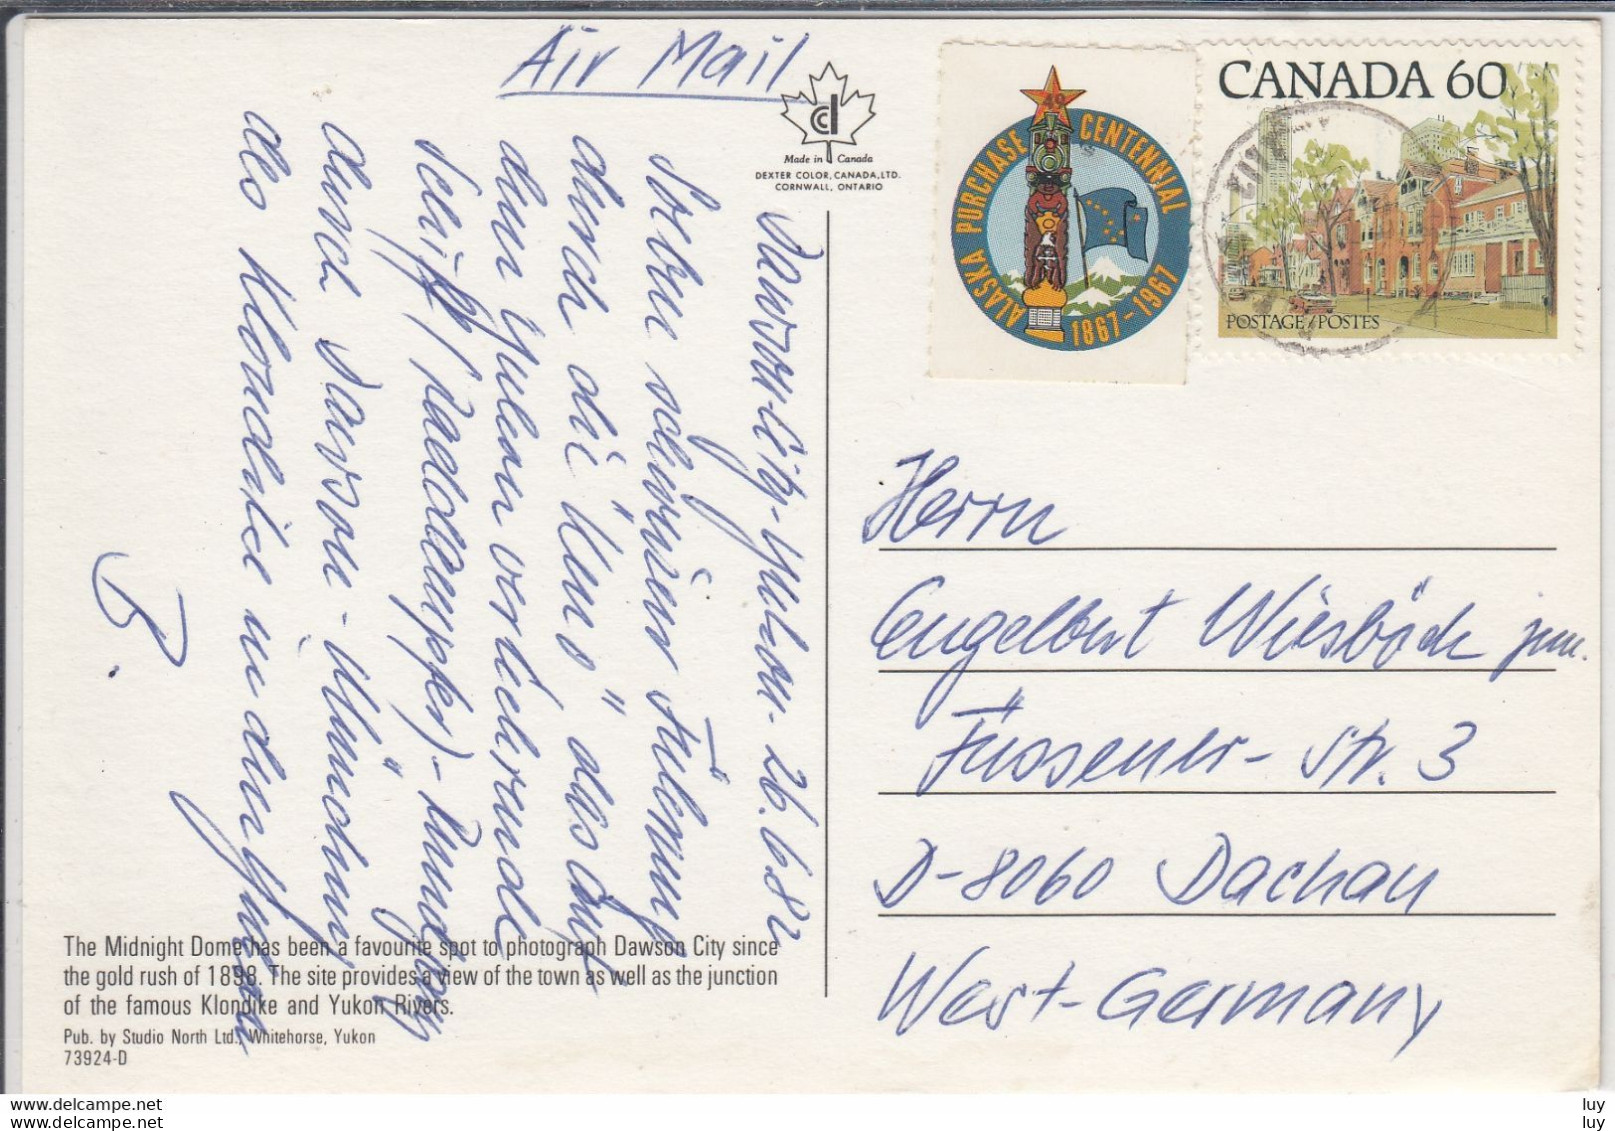 Air Mail
cd
Made in Canada
DEXTER COLOR, CANADA, LTD.
CORNWALL, ONTARIO
49
ALASKA PURCHASE CENTENNIAL
1867-1967
CANADA 60
POSTAGE/POSTES
Dawson-City-Yukon-26.6.82
Sieben
durch die
den Yukon
Schiff (Raddampfer)-
durch Dawson-
des Klondike in den
B.
Herrn
Engelbert Wiesböck jun.
Füssener-Str. 3
D-8060 Dachau
West-Germany
The Midnight Dome has been a favourite spot to photograph Dawson City since
the gold rush of 1898. The site provides a view of the town as well as the junction
of the famous Klondike and Yukon Rivers.
Pub. by Studio North Ltd., Whitehorse, Yukon
73924-D
delcampe.net
delcampe.net
luy
luy